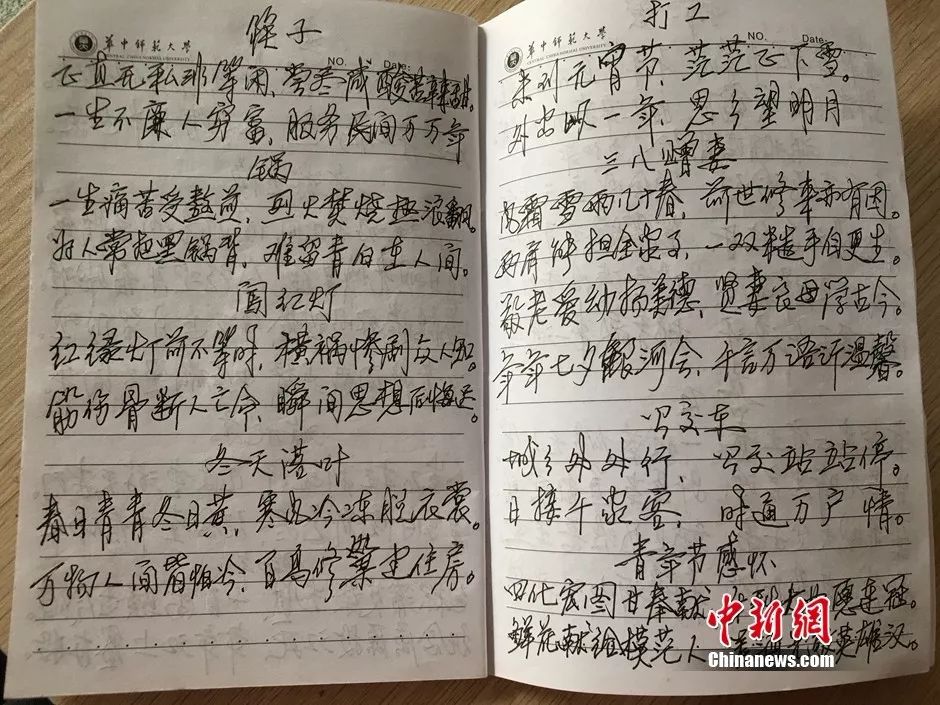 筷子
華中師範大學
CENTRAL CHINA NORMAL UNIVERSITY
NO. Date:
正直无私非等闲,尝尽咸酸苦辣甜。
一生不廉人穷富,服务民间万万年
锅
一生痛苦受熬煎,烈火焚烧极浪翻。
为人常把黑锅背,难留青白在人间。
闯红灯
红绿灯前不等时,横祸惨剧众人知。
筋伤骨断人亡命,瞬间思想后悔迟。
冬天落叶
春日青青冬日黄,寒冰冷冻脱衣裳。
万物人间皆怕冷,百鸟修巢建住房。
打工
華中師範大學
CENTRAL CHINA NORMAL UNIVERSITY
NO. Date:
来到元宵节,茫茫正下雪。
外出又一年,思乡望明月
三八赠妻
风霜雪雨几十春,前世修来亦有因。
两肩能担全家子,一双糙手自更生
敬老爱幼扬美德,贤妻良母学古今。
年年七夕银河会,千言万语诉温馨。
公交车
城乡外外行,公交站站停。
日接千家客,味通万户情。
青年节感怀
四化宏图甘奉献 愿连冠。
鲜花献给模范人 英雄汉。
中新网
Chinanews.com